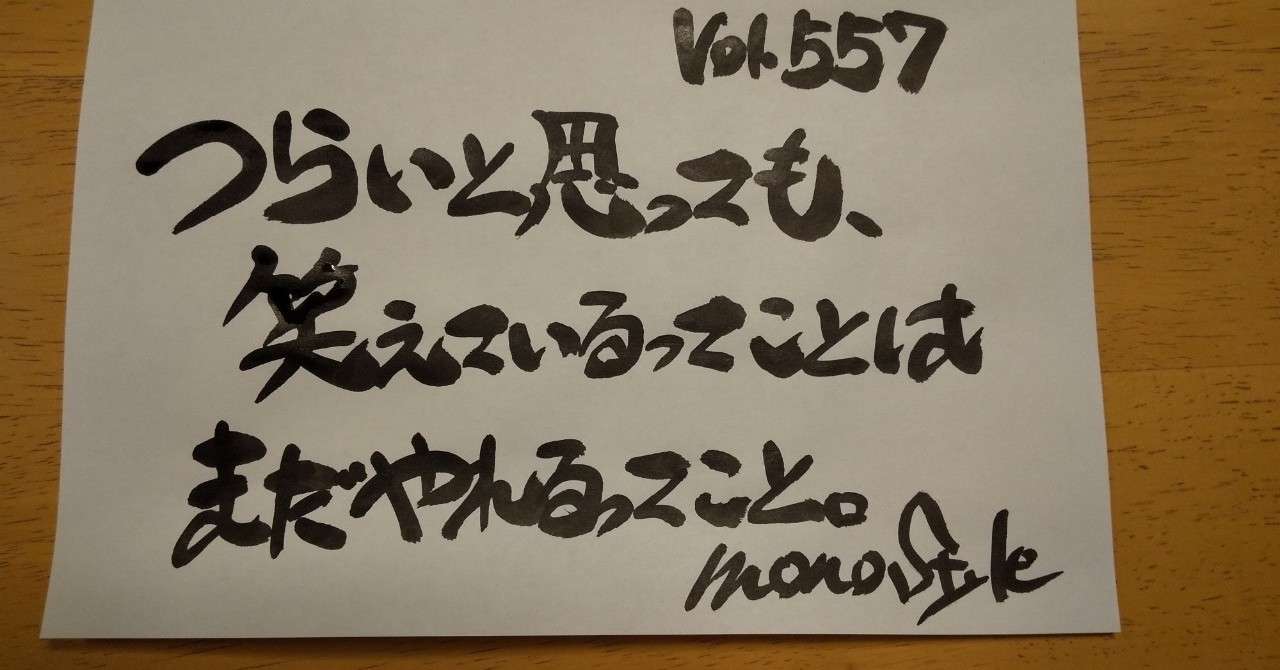 Vol.557
つらいと思っても、
笑えているってことは
まだやれるってこと。
monoStyle